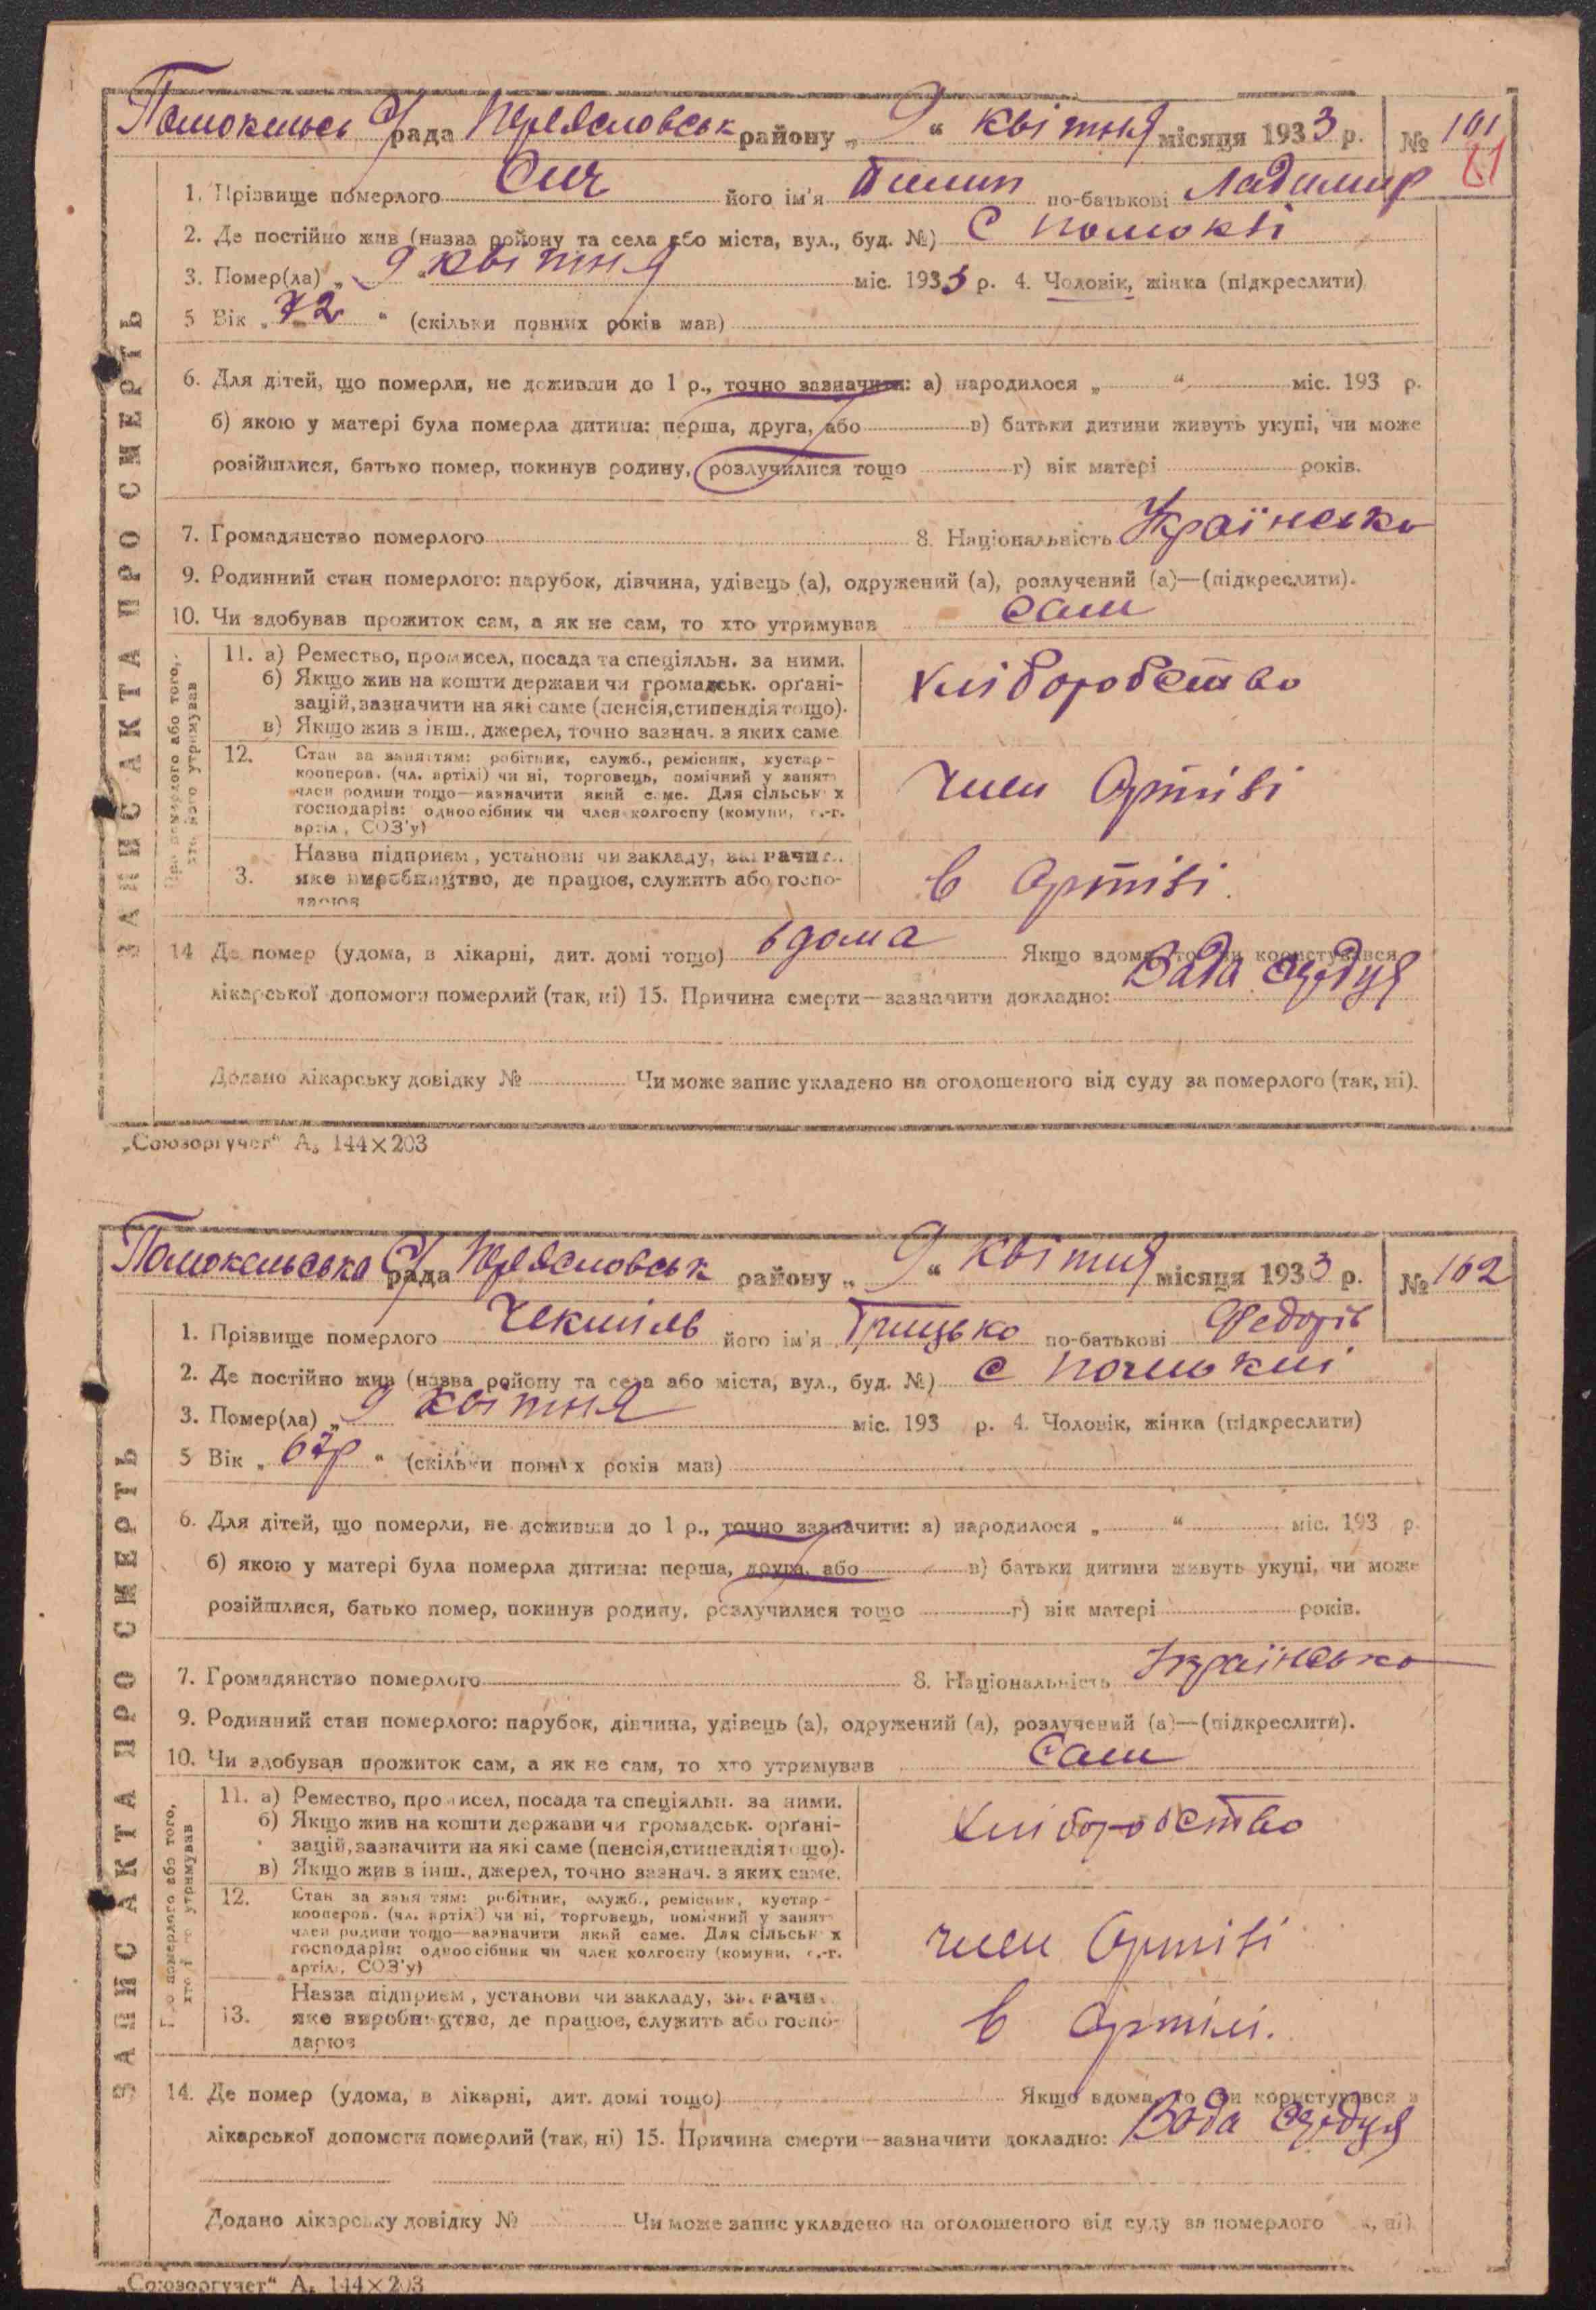 Помокельсь С/рада Переяславськ району „ 9 “ квітня місяця 1933 р. № 101
61
1. Прізвище померлого Сич його ім'я Пилип по-батькові Ладимир
2. Де постійно жив (назва району та села або міста, вул., буд. №) С Помоклі
3. Помер(ла) „ 9 “ квітня міс. 1933 р. 4. Чоловік, жінка (підкреслити)
5 Вік „ 72 “ (скільки повних років мав)
6. Для дітей, що померли, не доживши до 1 р., точно зазначити: а) народилося „ “ міс. 193 р.
б) якою у матері була померла дитина: перша, друга, або в) батьки дитини живуть укупі, чи може
розійшлися, батько помер, покинув родину, розлучилися тощо г) вік матері років.
7. Громадянство померлого 8. Національність Українська
9. Родинний стан померлого: парубок, дівчина, удівець (а), одружений (а), розлучений (а)—(підкреслити).
10. Чи здобував прожиток сам, а як не сам, то хто утримував сам
11. а) Ремество, промисел, посада та спеціяльн. за ними.
б) Якщо жив на кошти держави чи громадськ. орґані-
зацій, зазначити на які саме (пенсія, стипендія тощо).
в) Якщо жив з інш., джерел, точно зазнач. з яких саме
Хліборобство
12. Стан за заняттям: робітник, служб., ремісник, кустар-
кооперов. (чл. артілі) чи ні, торговець, помічний у занятт
член родини тощо—зазначити який саме. Для сільськ х
господарів: одноосібник чи член колгоспу (комуни, с.-г.
артіл, СОЗ'у)
член Артілі
3. Назва підприєм, установи чи закладу, зазначит.
яке виробництво, де працює, служить або госпо-
дарює
в Артілі.
14 Де помер (удома, в лікарні, дит. домі тощо) вдома Якщо вдома, то чи користувався
лікарської допомоги померлий (так, ні) 15. Причина смерти—зазначити докладно: Вада сердця
Додано лікарську довідку № Чи може запис укладено на оголошеного від суду за померлого (так, ні).
ЗАПИС АКТА ПРО СМЕРТЬ
Про померлого або того,
хто його утримував
„Союзоргучет“ А₅ 144×203
Помокельська С/рада Переяславськ району „ 9 “ квітня місяця 1933 р. № 102
1. Прізвище померлого Чекміль його ім'я Грицько по-батькові Федорів
2. Де постійно жив (назва району та села або міста, вул., буд. №) С Помоклі
3. Помер(ла) „ 9 квітня міс. 193 р. 4. Чоловік, жінка (підкреслити)
5 Вік „ 67р “ (скільки повних років мав)
6. Для дітей, що померли, не доживши до 1 р., точно зазначити: а) народилося „ “ міс. 193 р.
б) якою у матері була померла дитина: перша, друга, або в) батьки дитини живуть укупі, чи може
розійшлися, батько помер, покинув родину, розлучилися тощо г) вік матері років.
7. Громадянство померлого 8. Національність Українсько
9. Родинний стан померлого: парубок, дівчина, удівець (а), одружений (а), розлучений (а)—(підкреслити).
10. Чи здобував прожиток сам, а як не сам, то хто утримував Сам
11. а) Ремество, промисел, посада та спеціяльн. за ними.
б) Якщо жив на кошти держави чи громадськ. орґані-
зацій, зазначити на які саме (пенсія, стипендія тощо).
в) Якщо жив з інш., джерел, точно зазнач. з яких саме.
Хліборобство
12. Стан за заняттям: робітник, служб., ремісник, кустар-
кооперов. (чл. артілі) чи ні, торговець, помічний у занятт
член родини тощо—зазначити який саме. Для сільськ х
господарів: одноосібник чи член колгоспу (комуни, с.-г.
артілі, СОЗ'у)
член Артілі
13. Назва підприєм, установи чи закладу, зазначи
яке виробництво, де працює, служить або госпо-
дарює
в Артілі.
14. Де помер (удома, в лікарні, дит. домі тощо) Якщо вдома, то чи користувався з
лікарської допомоги померлий (так, ні) 15. Причина смерти—зазначити докладно: Вада сердця
Додано лікарську довідку № Чи може запис укладено на оголошеного від суду за померлого , ні)
ЗАПИС АКТА ПРО СМЕРТЬ
Про померлого або того,
хто його утримував
„Союзоргучет“ А₅ 144×203